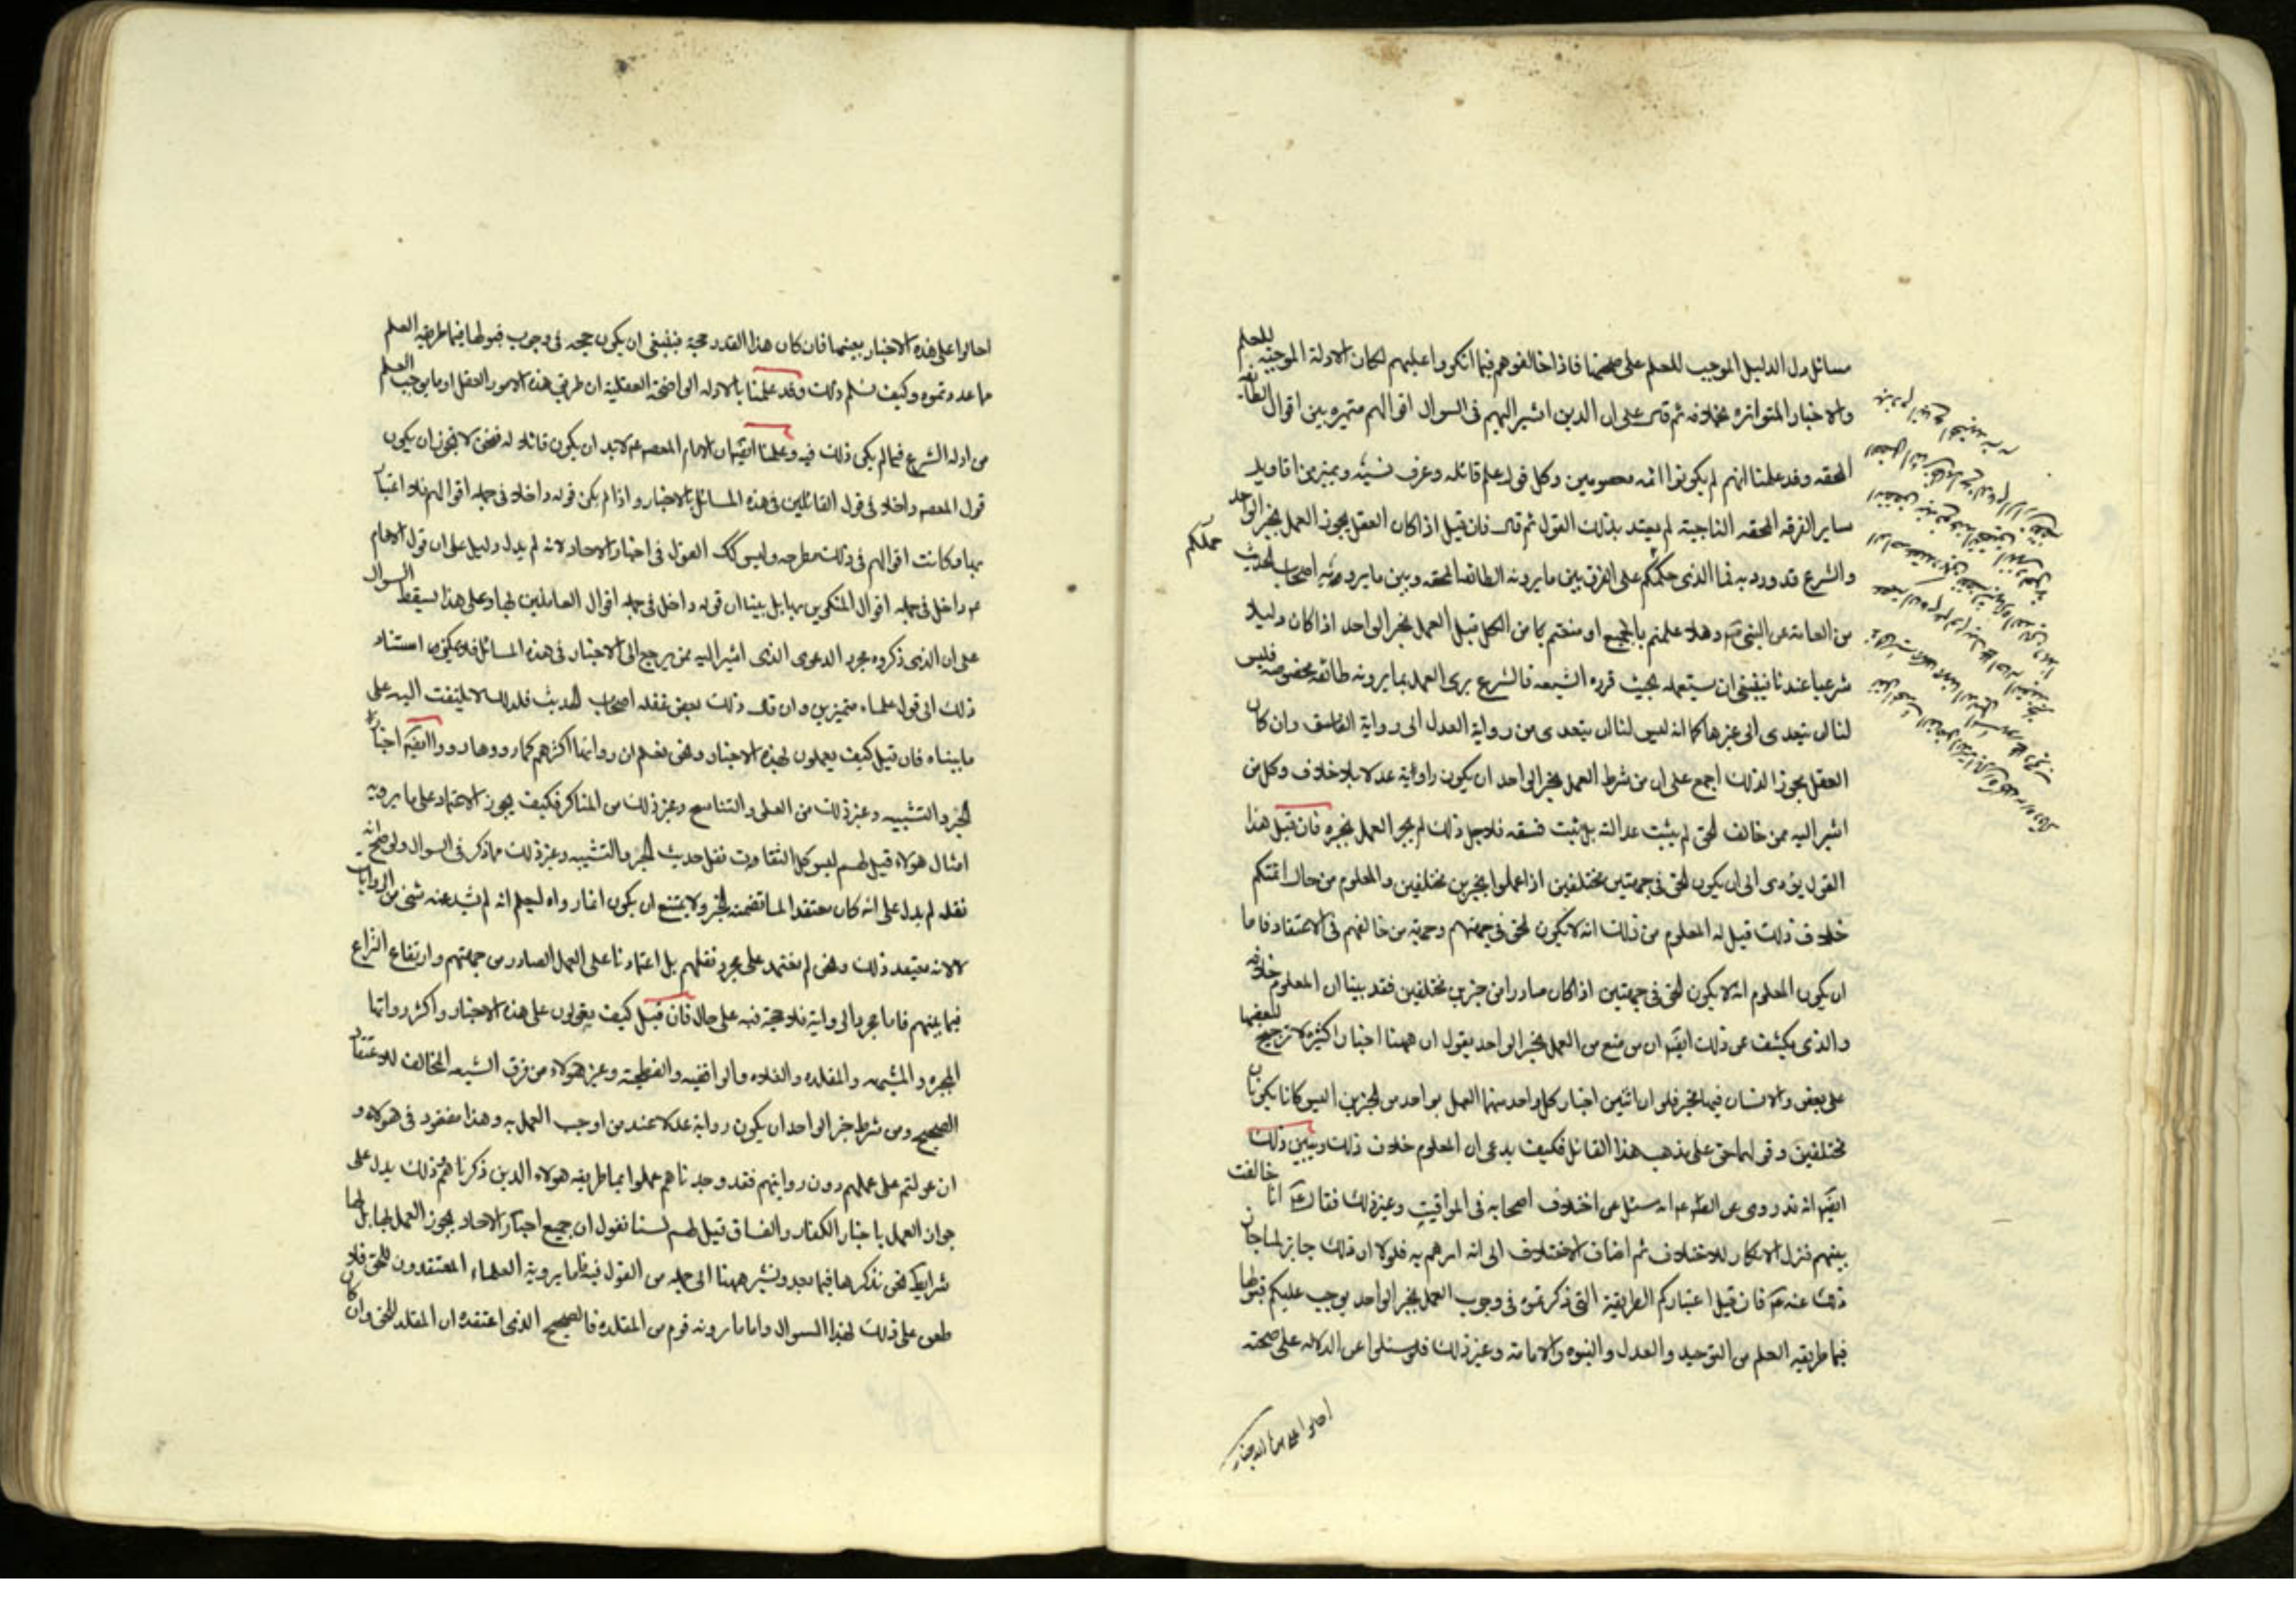 مسائل دل الدليل الموجب للعلم على صحتها فاذا خالفوهم فيها انكروا عليهم لمكان الادلة الموجبة للعلم
والاخبار المتواترة بخلافه ثم قال على ان الذين اشير اليهم فى السوال اقوالهم متميزه بين اقوال الطائفه
المحقه وقد علمنا انهم لم يكونوا ائمه معصومين وكل قول علم قائله وعرف نسبه وتميز من اقاويل
ساير الفرقه المحقه الناجية لم يعتد بذلك القول ثم قال فان قيل اذا كان العقل يجوز العمل بخبر الواحد
والشرع قد ورد به فما الذى حملكم على الفرق بين ما يرويه الطائفه المحقه وبين ما يرويه اصحاب الحديث
حملكم
من العامة عن النبى ص وهلا عملتم بالجميع او منعتم من الكل قيل العمل بخبر الواحد اذا كان دليلا
شرعيا عندنا فينبغى ان يستعمله بحيث قرره الشيعه فالشرع يرى العمل بما يرويه طائفه مخصوصه فليس
لنا ان نتعدى الى غيرها كما انه ليس لنا ان نتعدى من رواية العدل الى رواية الفاسق وان كان
العقل يجوز ا لذلك اجمع على ان من شرط العمل بخبر الواحد ان يكون راويه عدلا بلا خلاف وكل من
اشير اليه ممن خالف الحق لم يثبت عدالته بل ثبت فسقه فلاجل ذلك لم يجز العمل بخبره فان قيل هذا
القول يؤدى الى ان يكون الحق فى جهتين مختلفين اذا عملوا بخبرين مختلفين والمعلوم من حال ائمتكم
خلاف ذلك قيل له المعلوم من ذلك انه لا يكون الحق فى جهتهم وجهة من خالفهم فى الاعتقاد فاما
ان يكون المعلوم انه لا يكون الحق فى جهتين اذا كان صادرا من خبرين مختلفين فقد بينا ان المعلوم خلافه
والذى يكشف عن ذلك ايضا ان من منع من العمل بخبر الواحد يقول ان ههنا اخبارا كثيرة لا ترجيح لبعضها
على بعض والانسان فيها مخير فلو ان اثنين اختار كل واحد منهما العمل بواحد من الخبرين اليس كانا يكونان
مختلفين وقولهما حق على مذهب هذا القائل فكيف يدعى ان المعلوم خلاف ذلك ويبين ذلك
ايضا انه قد روى عن الصادق ع انه سئل عن اختلاف اصحابه فى المواقيت وغير ذلك فقال ع انا خالفت
بينهم فترك الانكار للاختلاف ثم اضاف الاختلاف الى انه امرهم به فلولا ان ذلك جايز لما جاز
ذلك عنه ع فان قيل اعتباركم الطريقة التى ذكرتموه فى وجوب العمل بخبر الواحد يوجب عليكم قبولها
فيما طريقه العلم من التوحيد والعدل والنبوه والامامة وغير ذلك فلو سئلوا عن الدلالة على صحته
احالوا على هذه الاخبار
احالوا على هذه الاخبار بعينها فان كان هذا القدر حجة فينبغى ان يكون حجه فى وجوب قبولها فيما طريقه العلم
ما عددتموه وكيف نسلم ذلك وقد علمنا بالادله الواضحة العقلية ان طريق هذه الامور العقل او ما يوجب العلم
من ادله الشرع فيما لم يكن ذلك فيه وعلمنا ايضا ان الامام المعصوم لابد ان يكون قائلا له فنحن لا نجوز ان يكون
قول المعصوم داخلا فى قول القائلين فى هذه المسائل بالاخبار واذا لم يكن قوله داخلا فى جمله اقوالهم فلا اعتبار
بها وكانت اقوالهم فى ذلك مطرحه وليس كك القول فى اخبار الاحاد لانه لم يدل دليل على ان قول الامام
ع داخل فى جمله اقوال المنكرين بها بل بينا ان قوله داخل فى جمله اقوال العاملين بها وعلى هذا يسقط السوال
على ان الذى ذكروه مجرد الدعوى الذى اشير اليه ممن يرجع الى الاخبار فى هذه المسائل فلا يمكن استناد
ذلك الى قول علماء متميزين وان قال ذلك بعض غفله اصحاب الحديث فذلك لا يلتفت اليه على
ما بيناه فان قيل كيف يعملون بهذه الاخبار ونحن نعلم ان رواتها اكثرهم كما رووها رووا ايضا اخبار
الجبر والتشبيه وغير ذلك من الغلو والتناسخ وغير ذلك من المناكر فكيف يجوز الاعتماد على ما يرويه
امثال هولاء قيل لهم ليس كل الثقات نقل حديث الجبر والتشبيه وغير ذلك مما ذكر فى السوال ولو صح انه
نقله لم يدل على انه كان معتقدا لما تضمنه الخبر ولا يمتنع ان يكون انما رواه ليعلم انه لم يشذ عنه شئ من الروايات
لا لانه يعتقد ذلك ونحن لم نعتمد على مجرد نقلهم بل اعتمادنا على العمل الصادر من جهتهم وارتفاع النزاع
فيما بينهم فاما مجرد الرواية فلا حجة فيه على حال فان قيل كيف يعولون على هذه الاخبار واكثر رواتها
المجبره والمشبهه والمقلده والغلاه والواقفيه والفطحية وغير هولاء من فرق الشيعه المخالف للاعتقاد
الصحيح ومن شرط خبر الواحد ان يكون راويه عدلا عند من اوجب العمل به وهذا مفقود فى هولاء و
ان عولتم على عملهم دون روايتهم فقد وجدناهم عملوا بما طريقه هولاء الذين ذكرناهم وذلك يدل على
جواز العمل باخبار الكفار والفساق قيل لهم لسنا نقول ان جميع اخبار الاحاد يجوز العمل بها بل لها
شرايط نحن نذكرها فيما بعد ونشير ههنا الى جمله من القول فيه فاما يرويه العلماء المعتقدون للحق فلا
طعن على ذلك بهذا السوال واما ما يرويه قوم من المقلده فالصحيح الذى اعتقده ان المقلد للحق وان كان